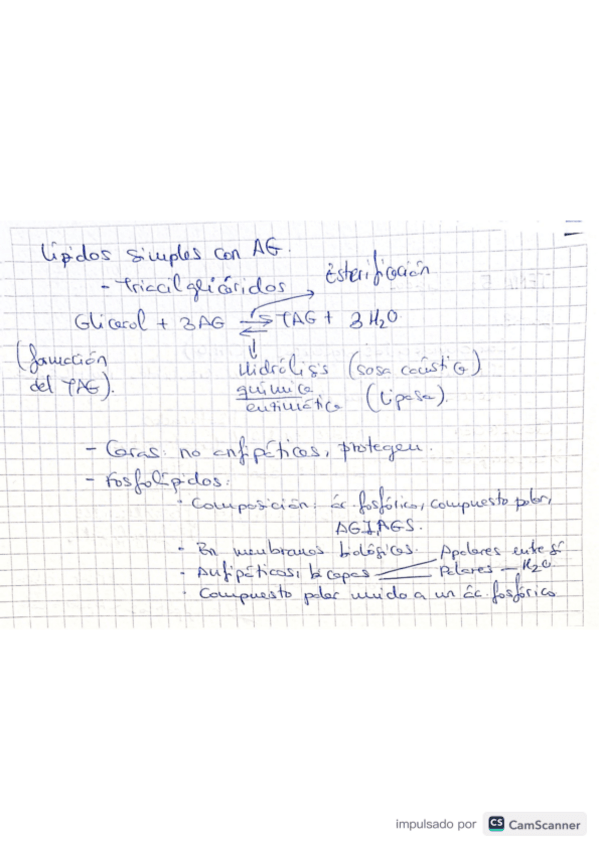 Lípidos simples con AG.
- Triacilglicéridos
Esterificación
Glicerol + 3AG ⇌ TAG + 3 H₂O
(formación
del TAG).
Hidrólisis (sosa caústica)
química
enzimática (lipasa).
- Ceras: no anfipáticos, protegen.
- Fosfolípidos:
· Composición: ác. fosfórico, compuesto polar,
· En membranas biológicas.
Apolares entre sí
· Anfipáticos; bicapas
Polares — H₂O.
· Compuesto polar unido a un ác. fosfórico
impulsado por CS CamScanner